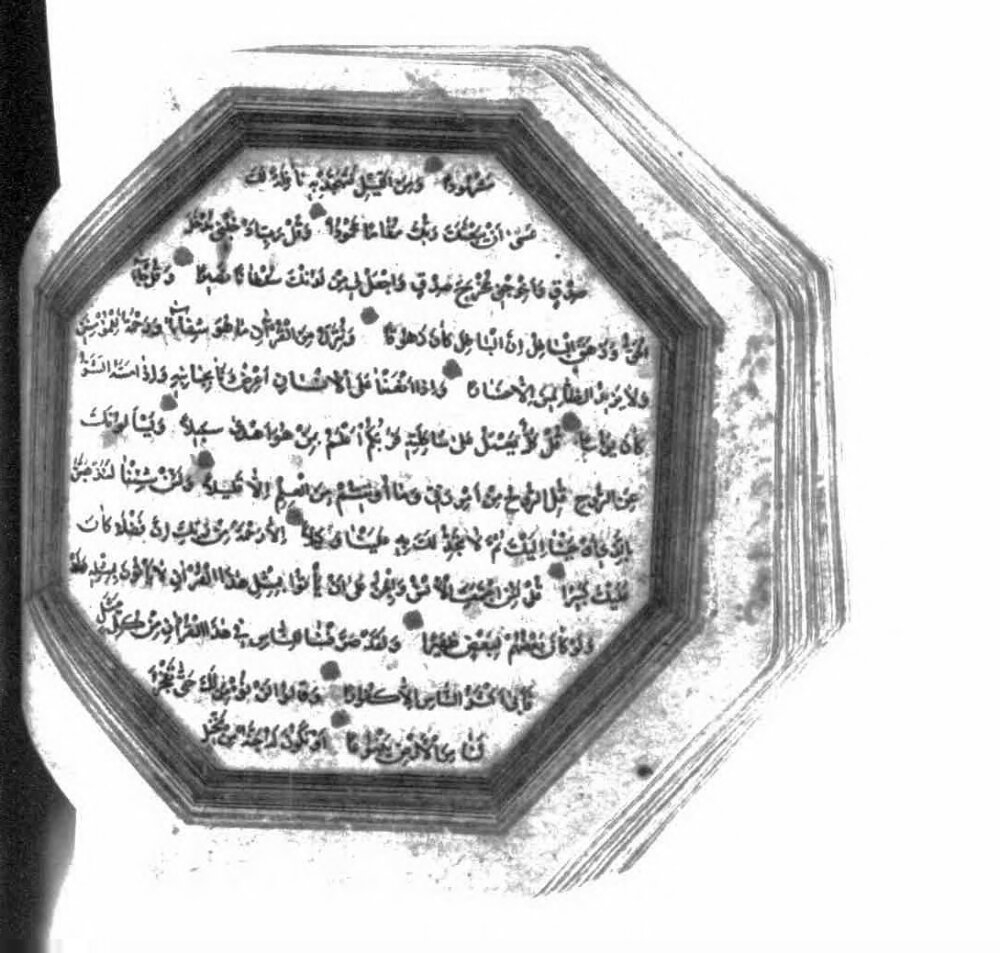 مَشْهُودًا وَمِنَ الَّيْلِ فَتَهَجَّدْ بِهِ نَافِلَةً لَكَ
عَسَى أَنْ يَبْعَثَكَ رَبُّكَ مَقَامًا مَحْمُودًا وَقُلْ رَبِّ أَدْخِلْنِي مُدْخَلَ
صِدْقٍ وَأَخْرِجْنِي مُخْرَجَ صِدْقٍ وَاجْعَلْ لِي مِنْ لَدُنْكَ سُلْطَانًا نَصِيرًا وَقُلْ جَاءَ
الْحَقُّ وَزَهَقَ الْبَاطِلُ إِنَّ الْبَاطِلَ كَانَ زَهُوقًا وَنُنَزِّلُ مِنَ الْقُرْآنِ مَا هُوَ شِفَاءٌ وَرَحْمَةٌ لِلْمُؤْمِنِينَ
وَلَا يَزِيدُ الظَّالِمِينَ إِلَّا خَسَارًا وَإِذَا أَنْعَمْنَا عَلَى الْإِنْسَانِ أَعْرَضَ وَنَأَى بِجَانِبِهِ وَإِذَا مَسَّهُ الشَّرُّ
كَانَ يَئُوسًا قُلْ كُلٌّ يَعْمَلُ عَلَى شَاكِلَتِهِ فَرَبُّكُمْ أَعْلَمُ بِمَنْ هُوَ أَهْدَى سَبِيلًا وَيَسْأَلُونَكَ
عَنِ الرُّوحِ قُلِ الرُّوحُ مِنْ أَمْرِ رَبِّي وَمَا أُوتِيتُمْ مِنَ الْعِلْمِ إِلَّا قَلِيلًا وَلَئِنْ شِئْنَا لَنَذْهَبَنَّ
بِالَّذِي أَوْحَيْنَا إِلَيْكَ ثُمَّ لَا تَجِدُ لَكَ بِهِ عَلَيْنَا وَكِيلًا إِلَّا رَحْمَةً مِنْ رَبِّكَ إِنَّ فَضْلَهُ كَانَ
عَلَيْكَ كَبِيرًا قُلْ لَئِنِ اجْتَمَعَتِ الْإِنْسُ وَالْجِنُّ عَلَى أَنْ يَأْتُوا بِمِثْلِ هَذَا الْقُرْآنِ لَا يَأْتُونَ بِمِثْلِهِ
وَلَوْ كَانَ بَعْضُهُمْ لِبَعْضٍ ظَهِيرًا وَلَقَدْ صَرَّفْنَا لِلنَّاسِ فِي هَذَا الْقُرْآنِ مِنْ كُلِّ مَثَلٍ
فَأَبَى أَكْثَرُ النَّاسِ إِلَّا كُفُورًا وَقَالُوا لَنْ نُؤْمِنَ لَكَ حَتَّى تَفْجُرَ
لَنَا مِنَ الْأَرْضِ يَنْبُوعًا أَوْ تَكُونَ لَكَ جَنَّةٌ مِنْ نَخِيلٍ